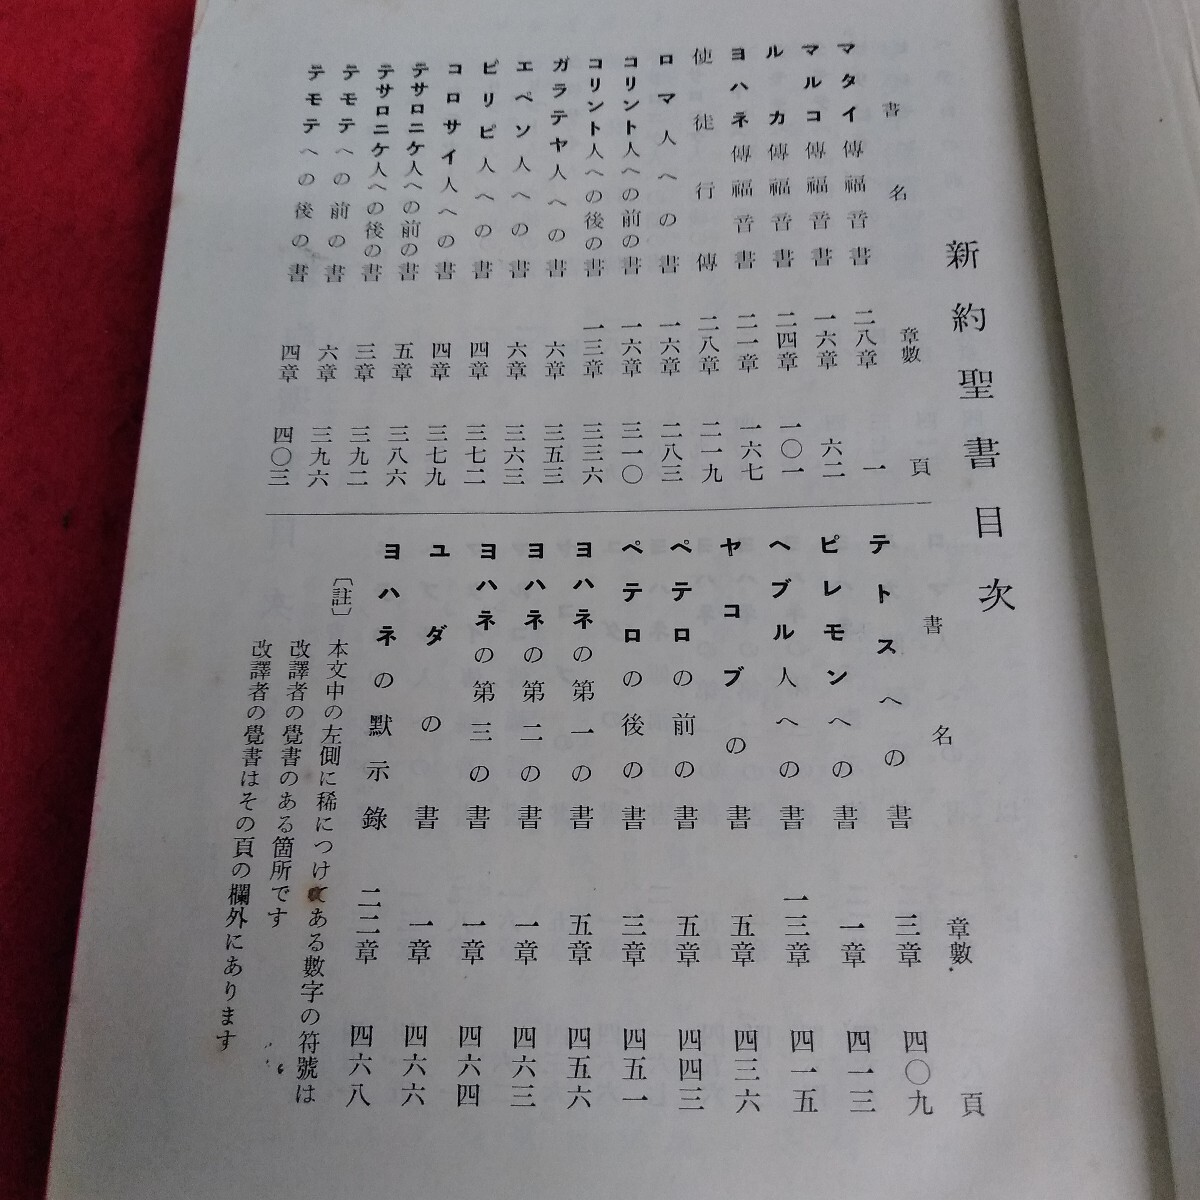 新約聖書目次
書名 章數 頁
マタイ傳福音書 二八章 一
マルコ傳福音書 一六章 六二
ルカ傳福音書 二四章 一〇一
ヨハネ傳福音書 二一章 一六七
使徒行傳 二八章 二一九
ロマ人への書 一六章 二八三
コリント人への前の書 一六章 三一〇
コリント人への後の書 一三章 三三六
ガラテヤ人への書 六章 三五三
エペソ人への書 六章 三六三
ピリピ人への書 四章 三七二
コロサイ人への書 四章 三七九
テサロニケ人への前の書 五章 三八六
テサロニケ人への後の書 三章 三九二
テモテへの前の書 六章 三九六
テモテへの後の書 四章 四〇三
書名 章數 頁
テトスへの書 三章 四〇九
ピレモンへの書 一章 四一三
ヘブル人への書 一三章 四一五
ヤコブの書 五章 四三六
ペテロの前の書 五章 四四三
ペテロの後の書 三章 四五一
ヨハネの第一の書 五章 四五六
ヨハネの第二の書 一章 四六三
ヨハネの第三の書 一章 四六四
ユダの書 一章 四六六
ヨハネの默示錄 二二章 四六八
〔註〕 本文中の左側に稀につけてある數字の符號は
改譯者の覺書のある箇所です
改譯者の覺書はその頁の欄外にあります